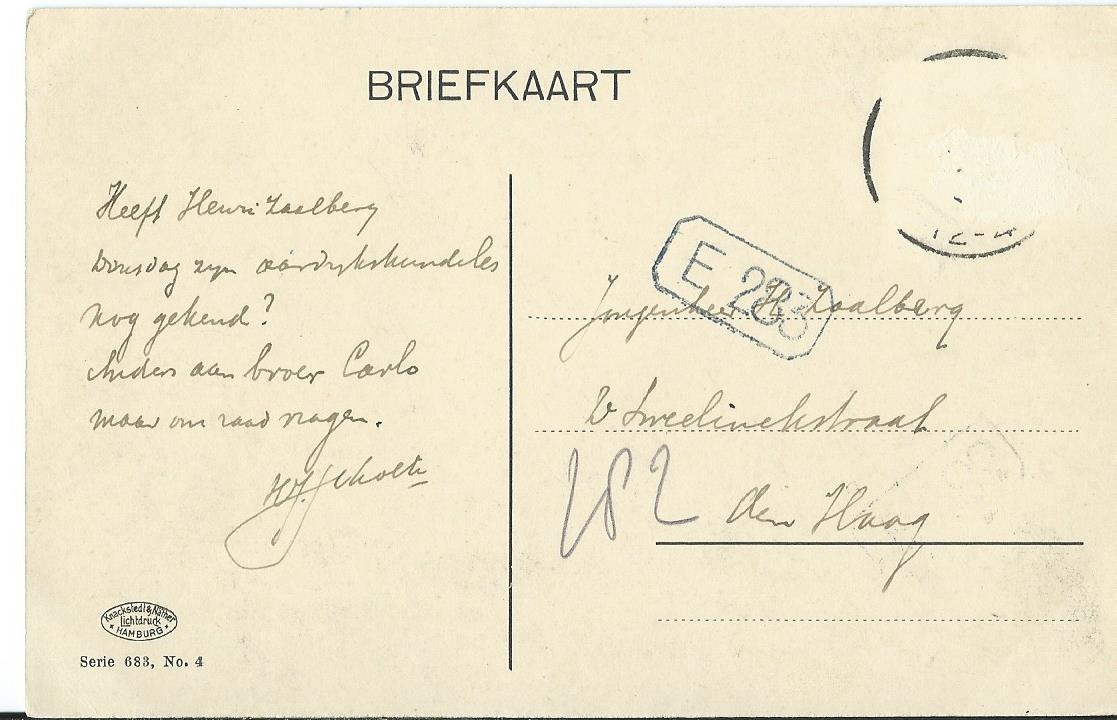 BRIEFKAART
Heeft Henri Zaalberg
Dinsdag zijn aardrijkskundeles
nog gekend?
Anders aan broer Carlo
maar om raad vragen.
H.J. Scholte
12-4
E 283
Jongenheer H. Zaalberg
Sweelinckstraat
282
den Haag
Knackstedt & Näther
lichtdruck
HAMBURG
Serie 683, No. 4